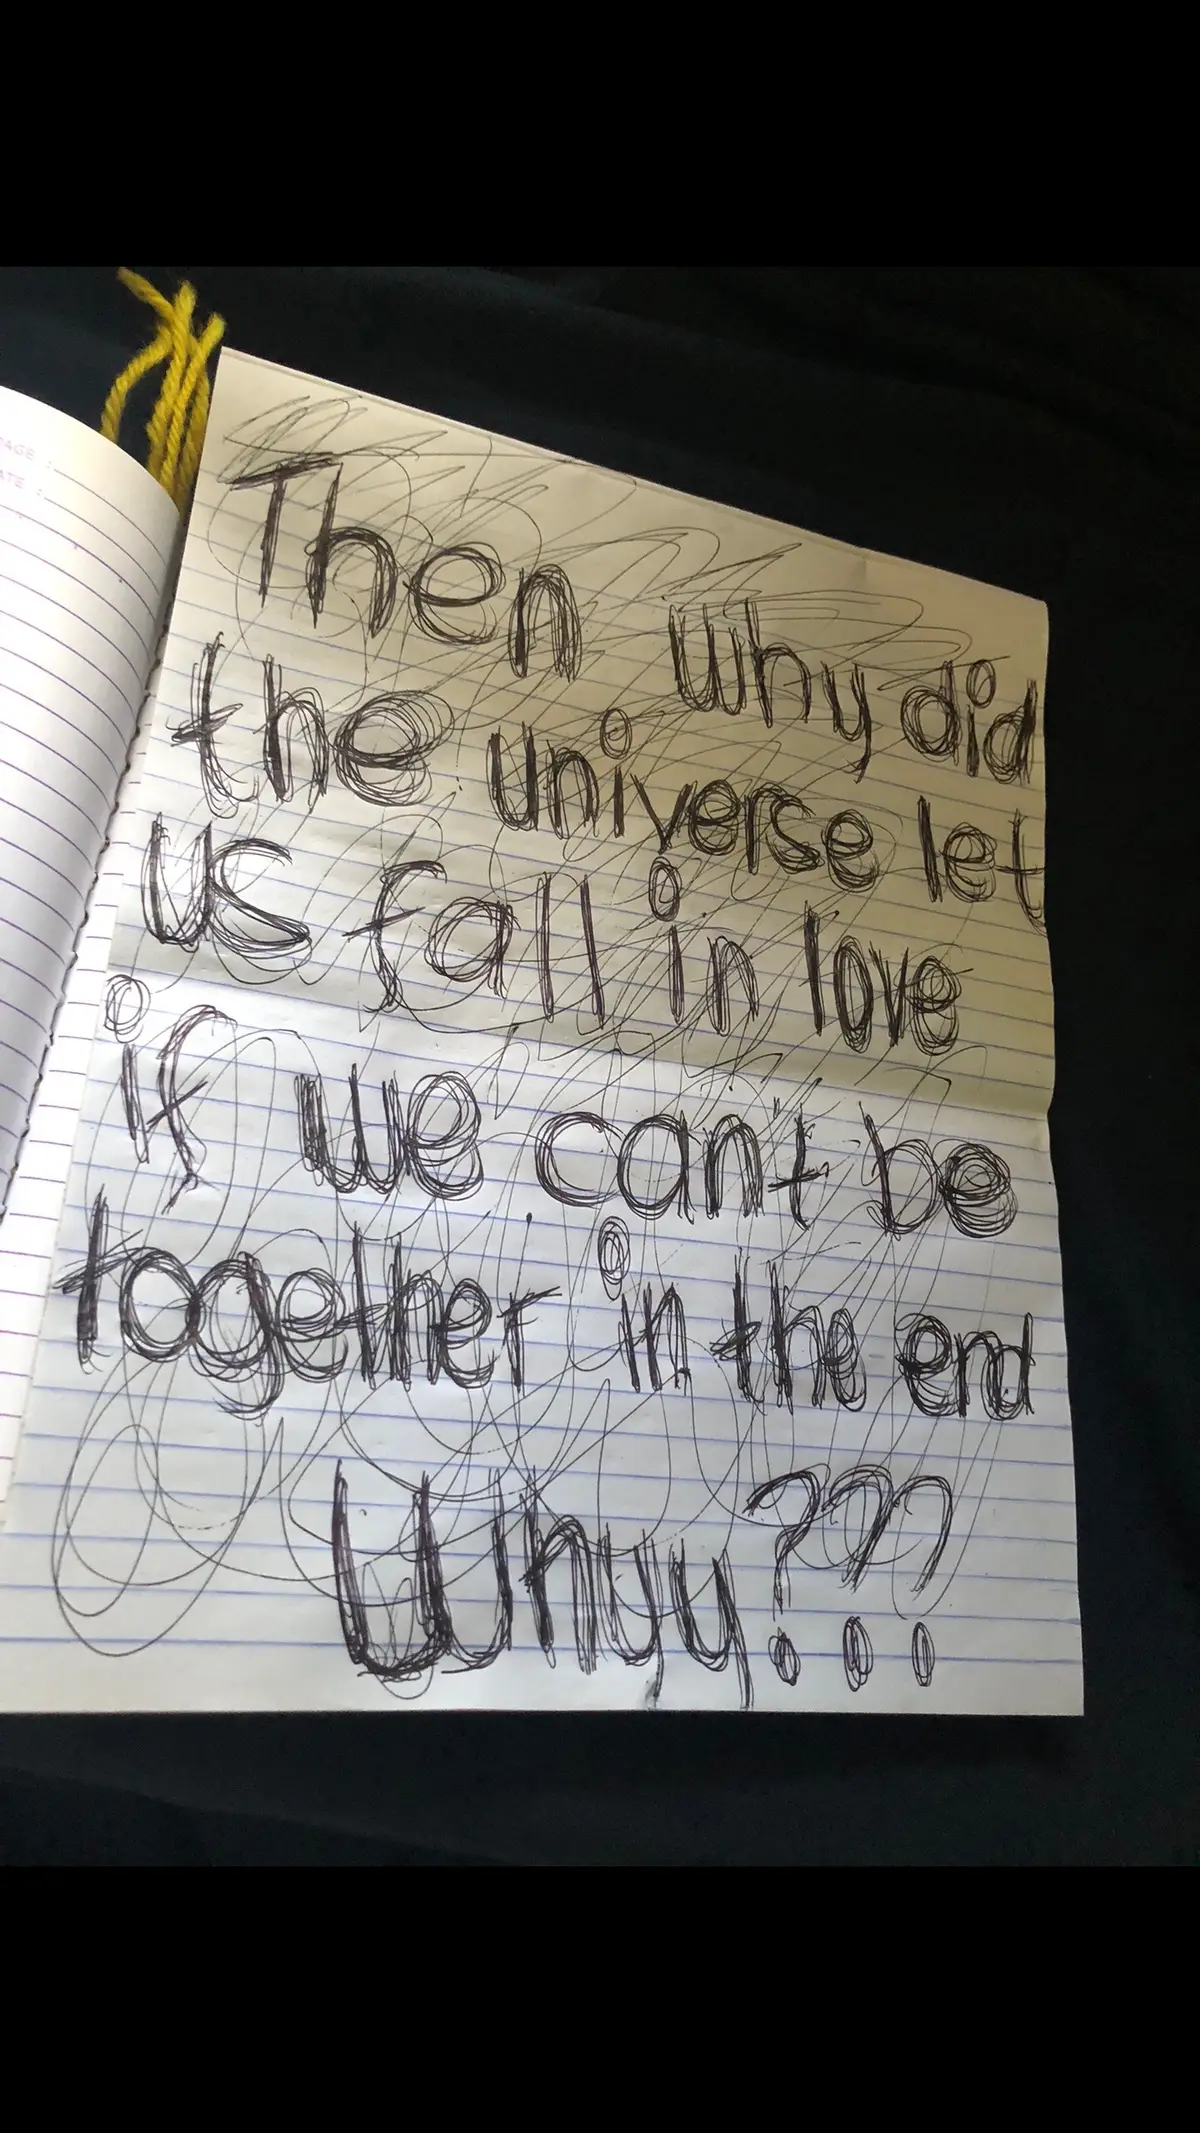 PAGE :
DATE :
Then why did
the universe let
us fall in love
if we can't be
together in the end
Whyy???